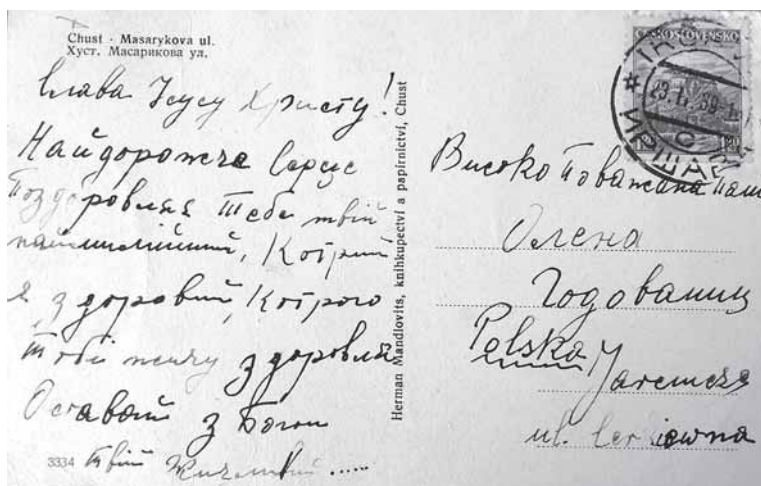 Chust - Masarykova ul.
Хуст. Масарикова ул.
Слава Ісусу Христу!
Найдорожча Серце
Поздоровляя Тебе твій
наймилійший, Котрий
є здоровий, Котрого
Тобі жичу здоровля
Оставай з Богом
3334 Твій Жичливий ......
Herman Mandlovits, knihkupectví a papírnictví, Chust
ČESKOSLOVENSKO
1.20
ИРШАВА
Високо Поважана Пані
Олена
Годованиц
Polska
Jaremcze
ul.